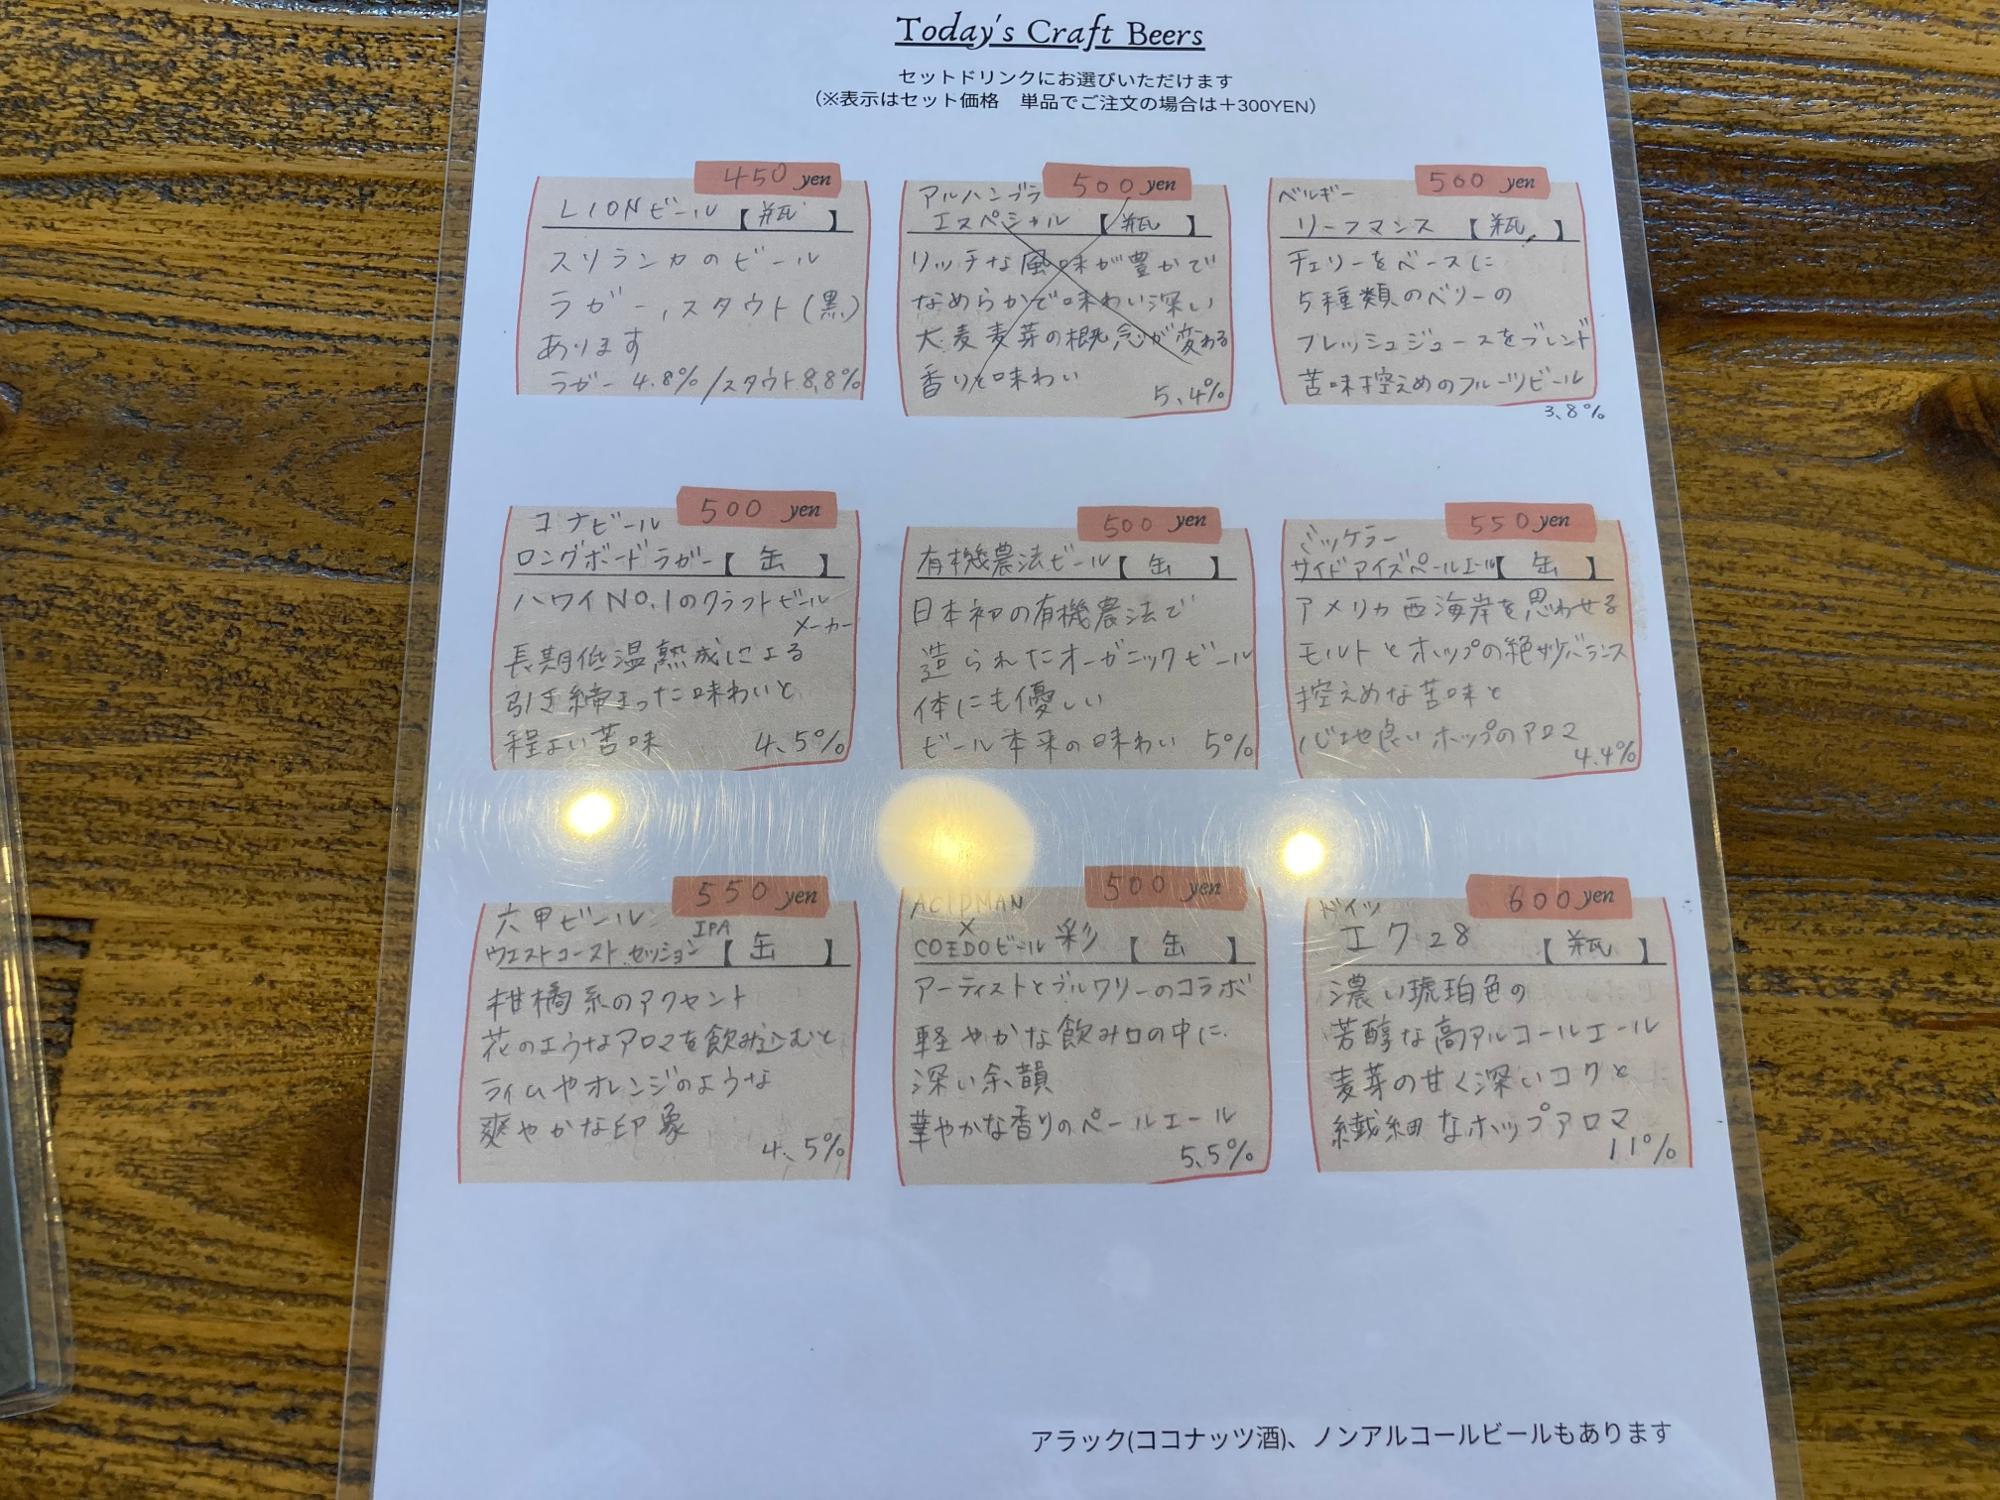 Today's Craft Beers
セットドリンクにお選びいただけます
(※表示はセット価格 単品でご注文の場合は+300YEN)
450 yen
LIONビール【瓶】
スリランカのビール
ラガー,スタウト(黒)
あります
ラガー 4.8% /スタウト8.8%
500 yen
アルハンブラ
エスペシャル【瓶】
リッチな風味が豊かで
なめらかで味わい深い
大麦麦芽の概念が変わる
香りと味わい
5.4%
500 yen
ベルギー
リーフマンス【瓶】
チェリーをベースに
5種類のベリーの
フレッシュジュースをブレンド
苦味控えめのフルーツビール
3.8%
500 yen
コナビール
ロングボードラガー【缶】
ハワイNO.1のクラフトビール
メーカー
長期低温熟成による
引き締まった味わいと
程よい苦味 4.5%
500 yen
有機農法ビール【缶】
日本初の有機農法で
造られたオーガニックビール
体にも優しい
ビール本来の味わい 5%
550 yen
ミッケラー
サイドアイズペールエール【缶】
アメリカ西海岸を思わせる
モルトとホップの絶妙バランス
控えめな苦味と
心地良いホップのアロマ
4.4%
550 yen
六甲ビール
IPA
ウエストコーストセッション【缶】
柑橘系のアクセント
花のようなアロマを飲み込むと
ライムやオレンジのような
爽やかな印象
4.5%
500 yen
ACIDMAN
×
COEDOビール 彩【缶】
アーティストとブルワリーのコラボ
軽やかな飲み口の中に
深い余韻
華やかな香りのペールエール
5.5%
600 yen
ドイツ
エク28【瓶】
濃い琥珀色の
芳醇な高アルコールエール
麦芽の甘く深いコクと
繊細なホップアロマ
11%
アラック(ココナッツ酒)、ノンアルコールビールもあります